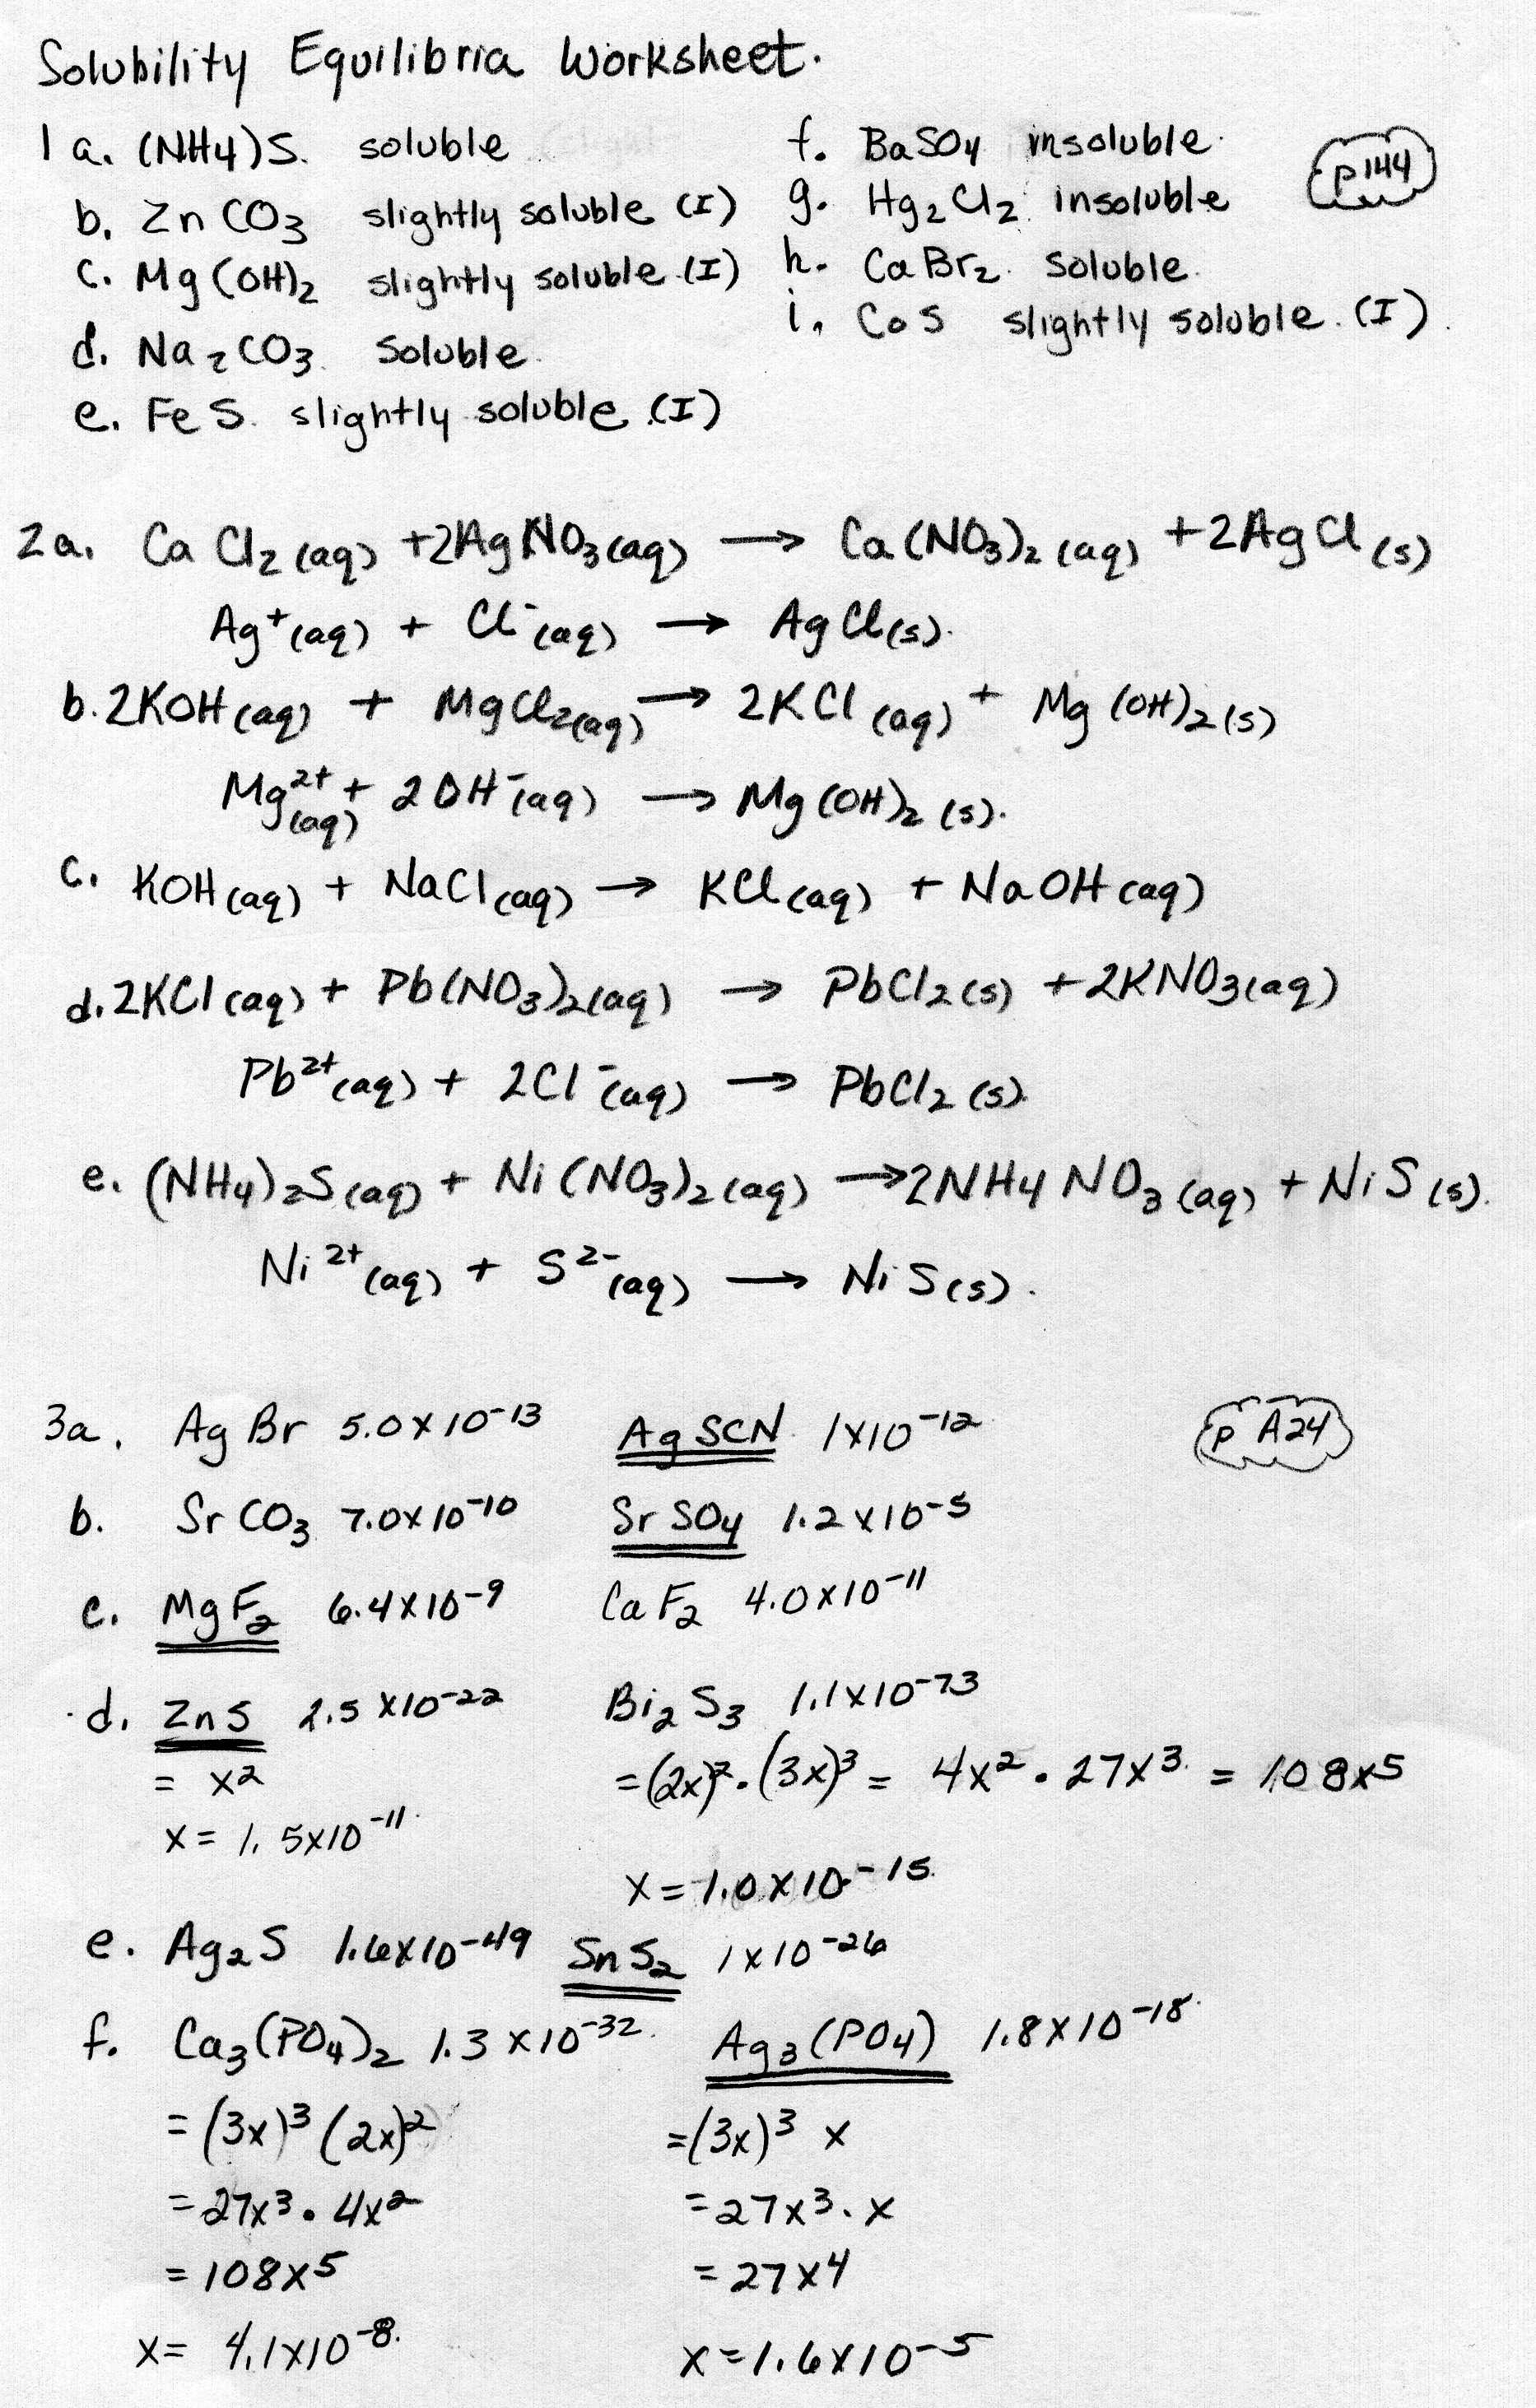 Solubility Equilibria Worksheet.
1 a. (NH4)S. soluble
b. ZnCO3 slightly soluble (I)
c. Mg(OH)2 slightly soluble (I)
d. Na2CO3. Soluble.
e. FeS. slightly soluble (I)
f. BaSO4 insoluble.
g. Hg2Cl2. insoluble
h. CaBr2. Soluble.
i. CoS slightly soluble. (I).
p144
2a. CaCl2(aq) + 2AgNO3(aq) → Ca(NO3)2(aq) + 2AgCl(s)
Ag⁺(aq) + Cl⁻(aq) → AgCl(s).
b. 2KOH(aq) + MgCl2(aq) → 2KCl(aq) + Mg(OH)2(s)
Mg²⁺(aq) + 2OH⁻(aq) → Mg(OH)2(s).
c. KOH(aq) + NaCl(aq) → KCl(aq) + NaOH(aq)
d. 2KCl(aq) + Pb(NO3)2(aq) → PbCl2(s) + 2KNO3(aq)
Pb²⁺(aq) + 2Cl⁻(aq) → PbCl2(s).
e. (NH4)2S(aq) + Ni(NO3)2(aq) → 2NH4NO3(aq) + NiS(s).
Ni²⁺(aq) + S²⁻(aq) → NiS(s).
3a. AgBr 5.0x10⁻¹³ AgSCN 1x10⁻¹² p A24
b. SrCO3 7.0x10⁻¹⁰ SrSO4 1.2x10⁻⁵
c. MgF2 6.4x10⁻⁹ CaF2 4.0x10⁻¹¹
d. ZnS 2.5x10⁻²² Bi2S3 1.1x10⁻⁷³
= x² = (2x)² · (3x)³ = 4x² · 27x³ = 108x⁵
x = 1.5x10⁻¹¹
x = 1.0x10⁻¹⁵
e. Ag2S 1.6x10⁻⁴⁹ SnS2 1x10⁻²⁶
f. Ca3(PO4)2 1.3x10⁻³² Ag3(PO4) 1.8x10⁻¹⁸
= (3x)³(2x)² = (3x)³ x
= 27x³ · 4x² = 27x³ · x
= 108x⁵ = 27x⁴
x = 4.1x10⁻⁸. x = 1.6x10⁻⁵